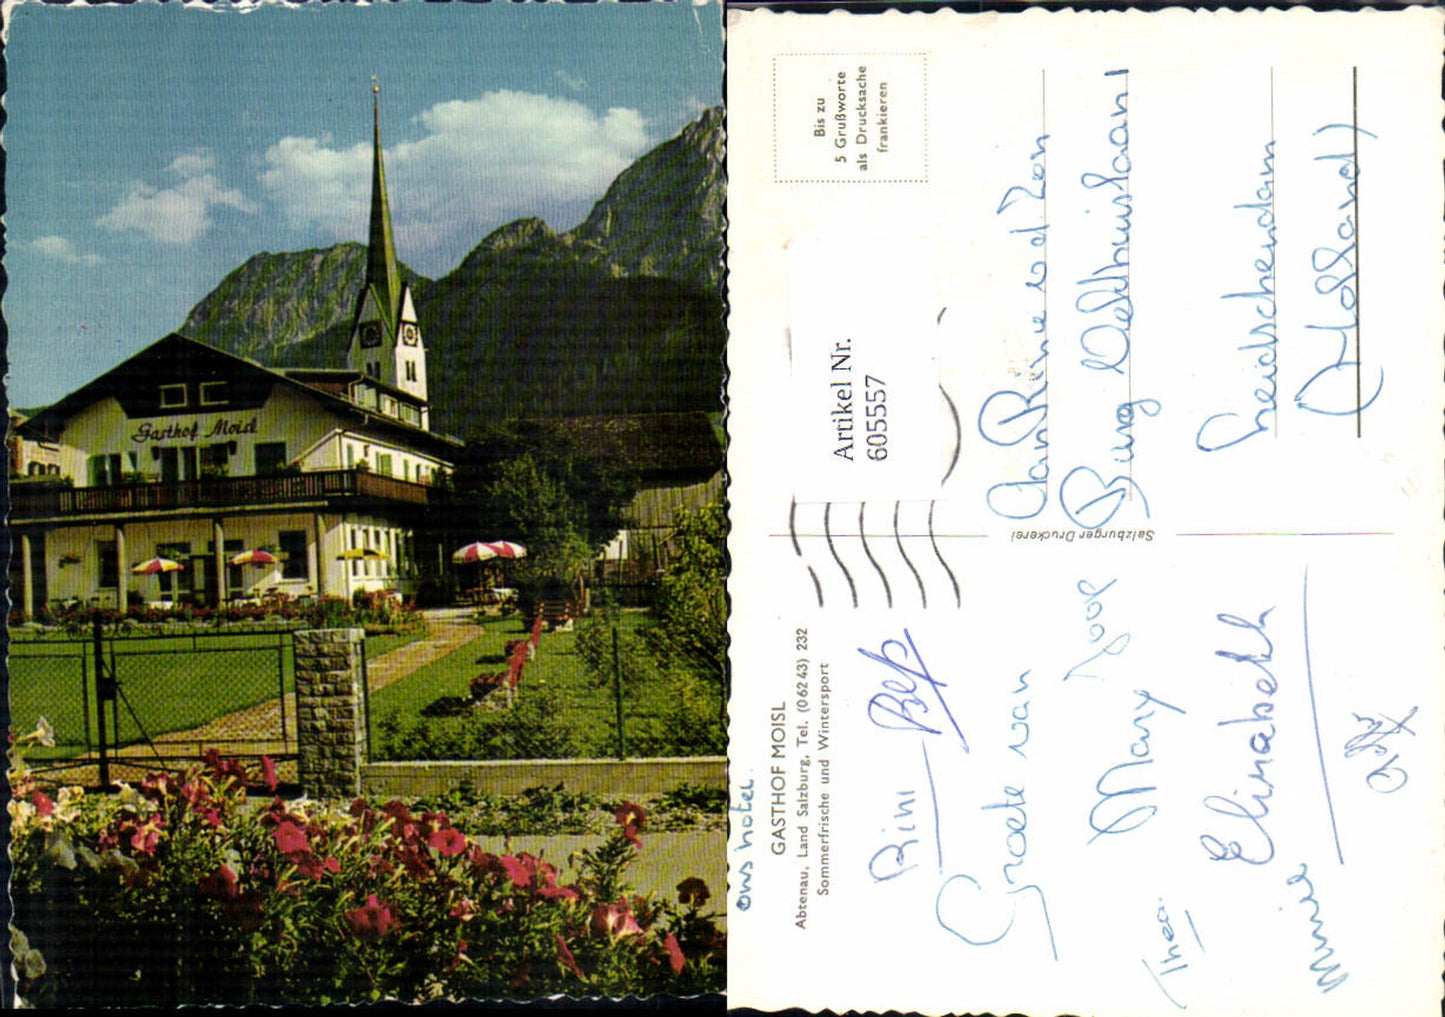 Gasthof Moisl
ons hotel.
GASTHOF MOISL
Abtenau, Land Salzburg, Tel. (0 62 43) 232
Sommerfrische und Wintersport
Rini Bep
Groete van
Mary Joop
Thea.
Elisabeth
Minnie
Salzburger Druckerei
Bis zu
5 Grußworte
als Drucksache
frankieren
Artikel Nr.
605557
Aan Rine v d Zon
Burg
Leidschendam
(Holland)